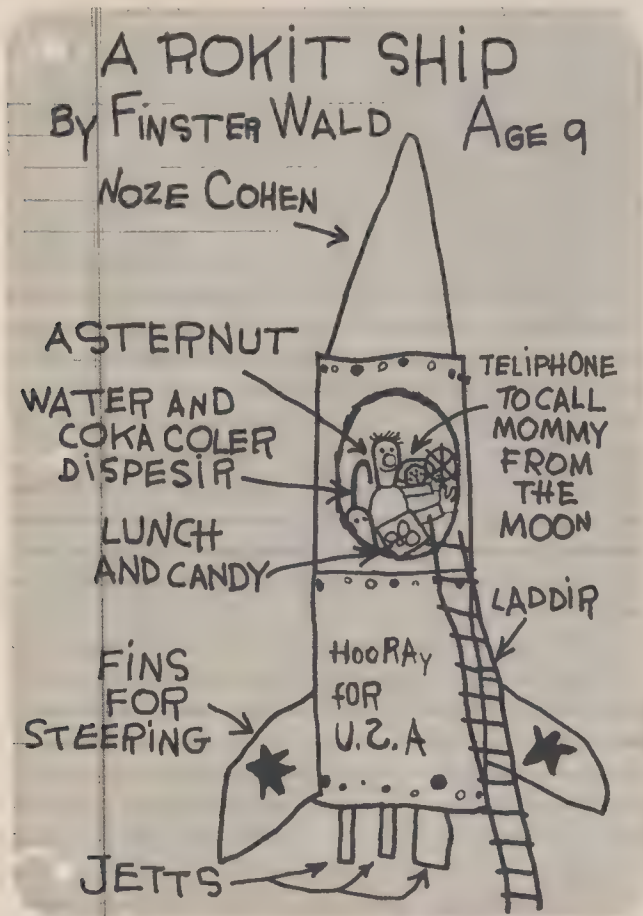 A ROKIT SHIP
BY FINSTER WALD AGE 9
NOZE COHEN
ASTERNUT
WATER AND
COKA COLER
DISPESIR
LUNCH
AND CANDY
TELIPHONE
TO CALL
MOMMY
FROM
THE
MOON
LADDIR
FINS
FOR
STEERING
HOORAY
FOR
U.S.A
JETTS